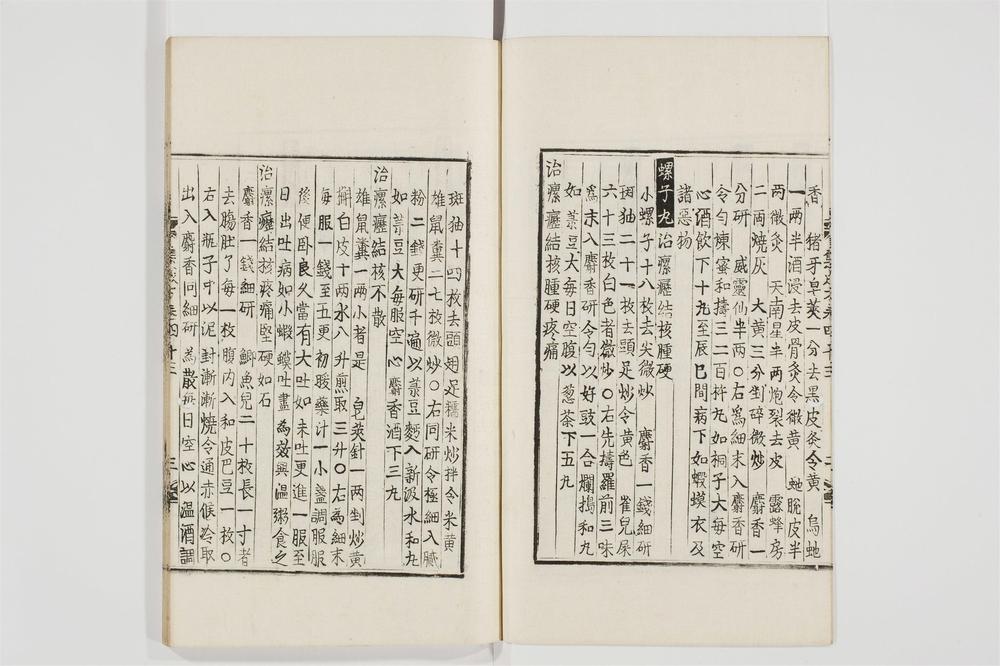 香 猪牙皁莢一分去黑皮灸令黄 烏虵
一兩半酒浸去皮骨灸令微黄 虵脫皮半
兩微灸 天南星半两炮裂去皮 露蜂房
二兩燒灰 大黄三分剉碎微炒 麝香一
分研 威靈仙半两○右為細末入麝香研
令匀煉蜜和擣三二百杵丸如桐子大每空
心酒飲下十九至辰巳間病下如蝦蟆衣及
諸惡物
螺子丸治瘰癧結核腫硬
小螺子十八枚去尖微炒 麝香一錢細研
斑猫二十一枚去頭足炒令黄色 雀兒屎
六十三枚白色者微炒○右先擣羅前三味
為末入麝香研令匀以好豉一合爛搗和丸
如菉豆大每日空腹以葱茶下五丸
治瘰癧結核腫硬疼痛
斑猫十四枚去頭翅足糯米炒拌令米黄
雄鼠糞二七枚微炒○右同研令極細入膩
粉二錢更研千遍以菉豆麵入新汲水和丸
如菉豆大每服空心麝香酒下三丸
治瘰癧結核不散
雄鼠糞一两小者是 皂莢針一两剉炒黄
槲白皮十两水八升煎取三升○右為細末
每服一錢至五更初暖藥汁一小盞調服服
後便卧良久當有大吐如未吐更進一服至
日出吐病如小蝦蟆吐盡為效與温粥食之
治瘰癧結核疼痛堅硬如石
麝香一錢細研 鯽魚兒二十枚長一寸者
去腸肚了每一枚腹内入和皮巴豆一枚○
右入瓶子中以泥封漸漸燒令通赤候冷取
出入麝香同細研為散每日空心以温酒調